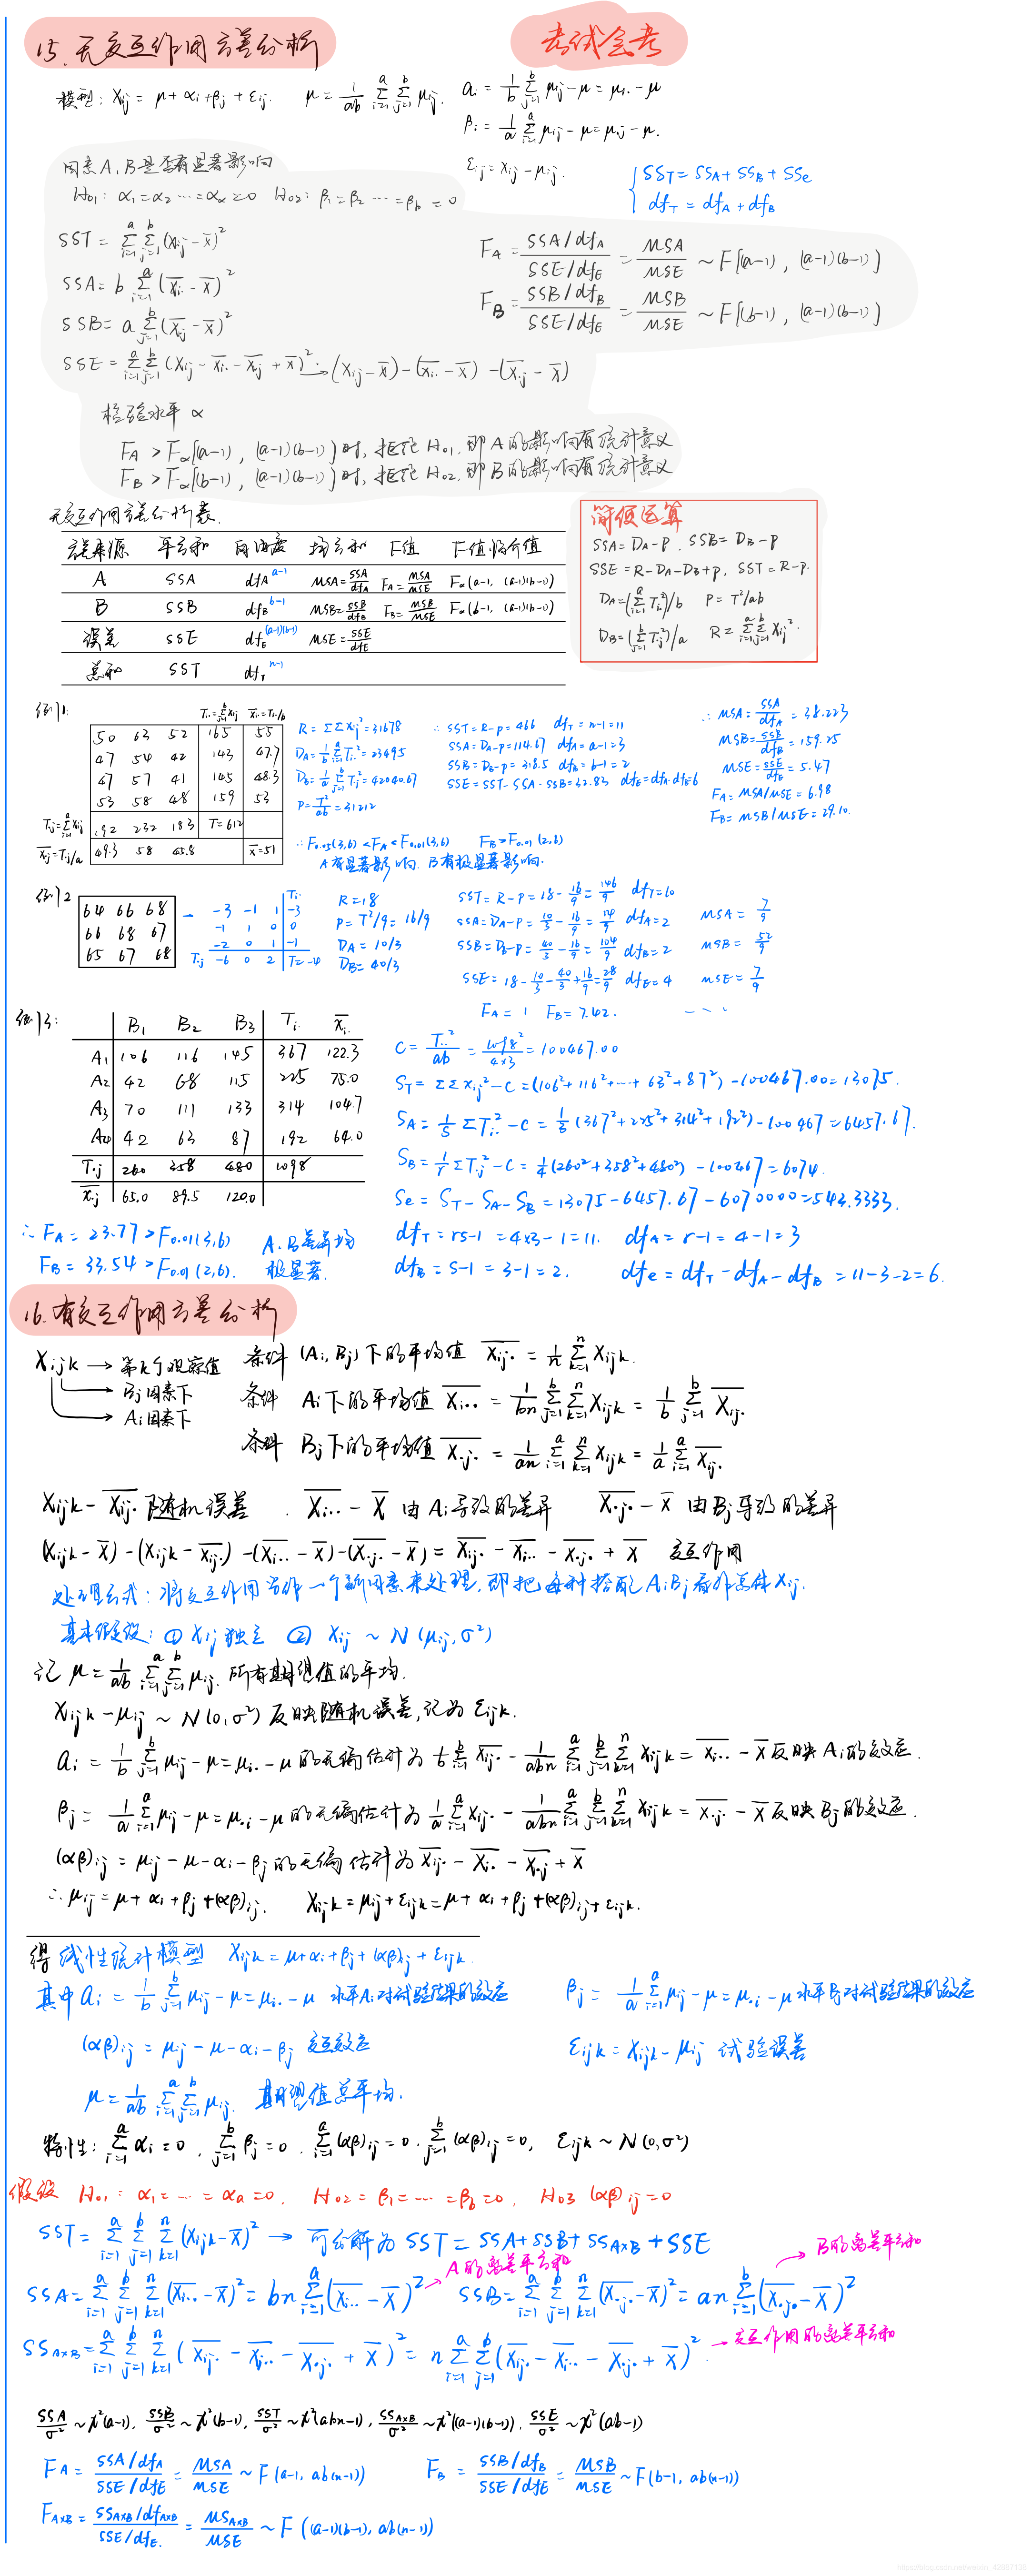 15. 无交互作用方差分析
考试会考
模型: Xij = μ + αi + βj + εij. μ = 1/ab Σ(i=1→a) Σ(j=1→b) μij. ai = 1/b Σ(j=1→b) μij - μ = μi. - μ
βi = 1/a Σ(i=1→a) μij - μ = μ.j - μ.
εij = xij - μij.
因素A,B是否有显著影响
H01: α1=α2 … =αa=0 H02: β1=β2 … =βb=0
{ SST = SSA + SSB + SSe
dfT = dfA + dfB
SST = Σ(i=1→a) Σ(j=1→b) (Xij - x̄)²
SSA = b Σ(i=1→a) (x̄i. - x̄)²
SSB = a Σ(j=1→b) (x̄.j - x̄)²
FA = (SSA/dfA)/(SSE/dfE) = MSA/MSE ~ F[(a-1), (a-1)(b-1)]
FB = (SSB/dfB)/(SSE/dfE) = MSB/MSE ~ F[(b-1), (a-1)(b-1)]
SSE = Σ(i=1→a) Σ(j=1→b) (Xij - x̄i. - x̄.j + x̄)² → (xij - x̄) - (x̄i. - x̄) - (x̄.j - x̄)
检验水平 α
FA > Fα[(a-1), (a-1)(b-1)]时, 拒绝H01, 即A的影响有统计意义
FB > Fα[(b-1), (a-1)(b-1)]时, 拒绝H02, 即B的影响有统计意义
无交互作用方差分析表.
方差来源 平方和 自由度 均方和 F值 F值临介值
A SSA dfA a-1 MSA=SSA/dfA FA=MSA/MSE Fα(a-1, (a-1)(b-1))
B SSB dfB b-1 MSB=SSB/dfB FB=MSB/MSE Fα(b-1, (a-1)(b-1))
误差 SSE dfE (a-1)(b-1) MSE=SSE/dfE
总和 SST dfT n-1
简便运算
SSA = DA-P. SSB = DB-P
SSE = R-DA-DB+P, SST = R-P.
DA = (Σ(i=1→a) Ti.²)/b P = T²/ab
DB = (Σ(j=1→b) T.j²)/a R = Σ(i=1→a) Σ(j=1→b) Xij².
例1:
Ti.=Σ(j=1→b) Xij x̄i.=Ti./b
50 63 52 165 55
47 54 42 143 47.7
47 57 41 145 48.3
53 58 48 159 53
T.j=Σ(i=1→a) Xij 192 232 183 T=612
x̄.j=T.j/a 49.3 58 45.8 x̄=51
R = ΣΣXij² = 31678
DA = 1/b Σ(i=1→a) Ti.² = 23495
DB = 1/a Σ Tj² = 42040.67
P = T²/ab = 31212
∴ SST = R-P = 466 dfT = n-1 = 11
SSA = DA-P = 114.67 dfA = a-1 = 3
SSB = DB-P = 318.5 dfB = b-1 = 2
SSE = SST-SSA-SSB = 32.83 dfE = dfA·dfE 6
∴ MSA = SSA/dfA = 38.223
MSB = SSB/dfB = 159.25
MSE = SSE/dfE = 5.47
FA = MSA/MSE = 6.98
FB = MSB/MSE = 29.10.
∴ F0.05(3,6) < FA < F0.01(3,6) FB > F0.01(2,6)
A有显著影响. B有极显著影响.
例2
64 66 68
66 68 67
65 67 68
→
Ti.
-3 -1 1 -3
-1 1 0 0
-2 0 1 -1
T.j -6 0 2 T=-4
R=18
P = T²/9 = 16/9
DA = 10/3
DB = 40/3
SST = R-P = 18 - 16/9 = 146/9 dfT=10
SSA = DA-P = 10/3 - 16/9 = 14/9 dfA=2 MSA = 7/9
SSB = DB-P = 40/3 - 16/9 = 104/9 dfB=2 MSB = 52/9
SSE = 18 - 10/3 - 40/3 + 16/9 = 28/9 dfE=4 MSE = 7/9
FA = 1 FB = 7.42. …
例3:
B1 B2 B3 Ti. x̄i.
A1 106 116 145 367 122.3
A2 42 68 115 225 75.0
A3 70 111 133 314 104.7
A4 42 63 87 192 64.0
T.j 260 358 480 1098
x̄.j 65.0 89.5 120.0
C = T..²/ab = 1098²/4×3 = 100467.00
ST = ΣΣxij² - C = (106²+116²+…+63²+87²) - 100467.00 = 13075.
SA = 1/s ΣTi.² - C = 1/3 (367²+225²+314²+192²) - 100467 = 6457.67.
SB = 1/r ΣT.j² - C = 1/4 (260²+358²+480²) - 100467 = 6074.
Se = ST - SA - SB = 13075 - 6457.67 - 6070000 = 543.3333.
dfT = rs-1 = 4×3-1 = 11. dfA = r-1 = 4-1 = 3
dfB = s-1 = 3-1 = 2. dfe = dfT - dfA - dfB = 11-3-2 = 6.
∴ FA = 23.77 > F0.01(3,6) A.B差异均
FB = 33.54 > F0.01(2,6). 极显著.
16. 有交互作用方差分析
Xijk → 第k个观察值
→ Bj因素下
→ Ai因素下
条件 (Ai, Bj) 下的平均值 X̄ij. = 1/n Σ(k=1→n) Xijk.
条件 Ai下的平均值 X̄i.. = 1/bn Σ(j=1→b) Σ(k=1→n) Xijk = 1/b Σ(j=1→b) X̄ij.
条件 Bj下的平均值 X̄.j. = 1/an Σ(i=1→a) Σ(k=1→n) Xijk = 1/a Σ(i=1→a) X̄ij.
Xijk - X̄ij. 随机误差. X̄i.. - X̄ 由Ai导致的差异 X̄.j. - X̄ 由Bj导致的差异
(Xijk - X̄) - (Xijk - X̄ij.) - (X̄i.. - X̄) - (X̄.j. - X̄) = X̄ij. - X̄i.. - X̄.j. + X̄ 交互作用
处理方式: 将交互作用当作一个新因素来处理, 即把每种搭配AiBj看作总体Xij.
基本假设: ① Xij 独立 ② Xij ~ N(μij, σ²)
记 μ = 1/ab Σ(i=1→a) Σ(j=1→b) μij. 所有期望值的平均.
Xijk - μij ~ N(0, σ²) 反映随机误差, 记为 εijk.
ai = 1/b Σ(j=1→b) μij - μ = μi. - μ 的无偏估计为 1/b Σ X̄ij. - 1/abn Σ(i=1→a) Σ(j=1→b) Σ(k=1→n) Xijk = X̄i.. - X̄ 反映Ai的效应.
βj = 1/a Σ(i=1→a) μij - μ = μ.i - μ 的无偏估计为 1/a Σ(i=1→a) Xij. - 1/abn Σ(i=1→a) Σ(j=1→b) Σ(k=1→n) Xijk = X̄.j. - X̄ 反映Bj的效应.
(αβ)ij = μij - μ - αi - βj 的无偏估计为 X̄ij. - X̄i. - X̄.j + X̄
∴ μij = μ + αi + βj + (αβ)ij. Xijk = μij + εijk = μ + αi + βj + (αβ)ij + εijk.
得线性统计模型 Xijk = μ + αi + βj + (αβ)ij + εijk.
其中 ai = 1/b Σ(j=1→b) μij - μ = μi. - μ 水平Ai对试验结果的效应 βj = 1/a Σ(i=1→a) μij - μ = μ.i - μ 水平Bj对试验结果的效应
(αβ)ij = μij - μ - αi - βj 交互效应 εijk = Xijk - μij 试验误差
μ = 1/ab Σ(i=1→a) Σ(j=1→b) μij. 期望值总平均.
特性: Σ(i=1→a) αi = 0. Σ(j=1→b) βj = 0. Σ(i=1→a) (αβ)ij = 0. Σ(j=1→b) (αβ)ij = 0, εijk ~ N(0, σ²)
假设 H01: α1 = … = αa = 0. H02 = β1 = … = βb = 0, H03 (αβ)ij = 0
SST = Σ(i=1→a) Σ(j=1→b) Σ(k=1→n) (Xijk - X̄)² → 可分解为 SST = SSA + SSB + SSA×B + SSE
SSA = Σ(i=1→a) Σ(j=1→b) Σ(k=1→n) (X̄i.. - X̄)² = bn Σ(i=1→a) (X̄i.. - X̄)² → A的离差平方和
SSB = Σ(i=1→a) Σ(j=1→b) Σ(k=1→n) (X̄.j. - X̄)² = an Σ(i=1→b) (X̄.j. - X̄)² → B的离差平方和
SSA×B = Σ(i=1→a) Σ(j=1→b) Σ(k=1→n) (X̄ij. - X̄i.. - X̄.j. + X̄)² = n Σ(i=1→a) Σ(j=1→b) (X̄ij. - X̄i.. - X̄.j. + X̄)² → 交互作用的离差平方和
SSA/σ² ~ χ²(a-1). SSB/σ² ~ χ²(b-1), SST/σ² ~ χ²(abn-1), SSA×B/σ² ~ χ²((a-1)(b-1)). SSE/σ² ~ χ²(ab-1)
FA = (SSA/dfA)/(SSE/dfE) = MSA/MSE ~ F(a-1, ab(n-1)) FB = (SSB/dfB)/(SSE/dfE) = MSB/MSE ~ F(b-1, ab(n-1))
FA×B = (SSA×B/dfA×B)/(SSE/dfE.) = MSA×B/MSE ~ F((a-1)(b-1), ab(n-1))